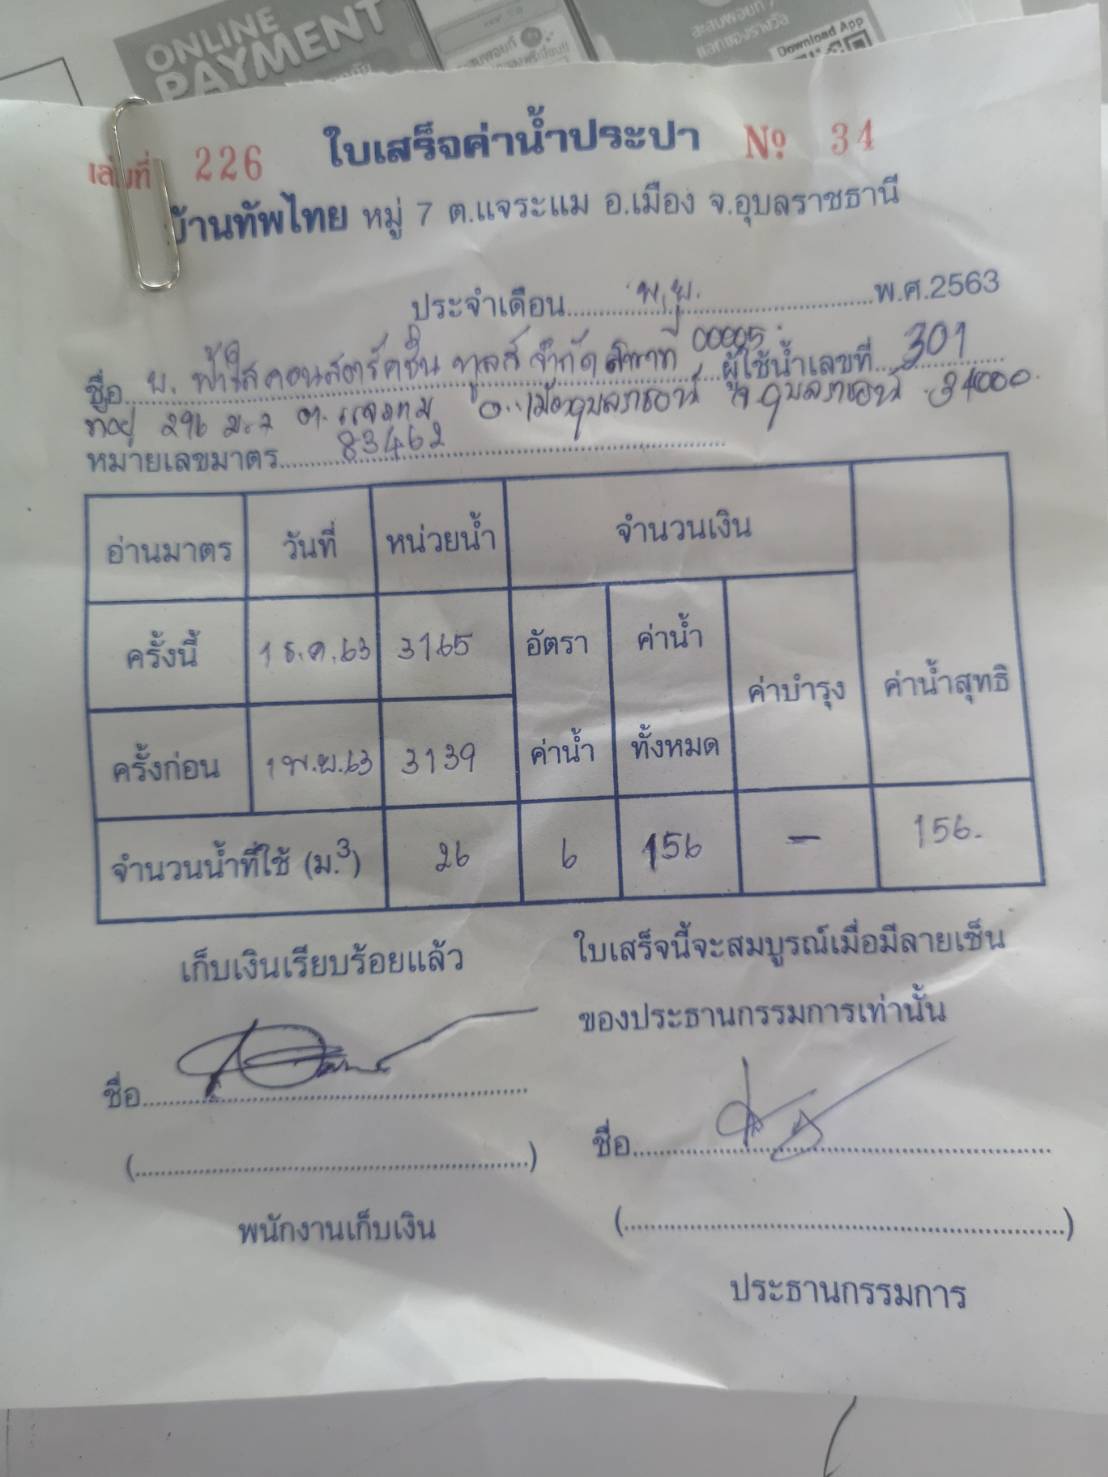 ONLINE
PAYMENT
Download App
เล่มที่ 226 ใบเสร็จค่าน้ำประปา Nº 34
บ้านทัพไทย หมู่ 7 ต.แจระแม อ.เมือง จ.อุบลราชธานี
ประจำเดือน พ.ย. พ.ศ.2563
ชื่อ บ. ฟ้าใสคอนสตรัคชั่น ทูลส์ จำกัด สาขาที่ 00005 ผู้ใช้น้ำเลขที่ 301
ที่อยู่ 296 ม.7 ต.แจระแม อ.เมืองอุบลราชธานี จ.อุบลราชธานี 34000
หมายเลขมาตร 83462
อ่านมาตร วันที่ หน่วยน้ำ จำนวนเงิน ค่าน้ำสุทธิ
ครั้งนี้ 1 ธ.ค.63 3165 อัตราค่าน้ำ ค่าน้ำทั้งหมด ค่าบำรุง
ครั้งก่อน 1 พ.ย.63 3139
จำนวนน้ำที่ใช้ (ม.³) 26 6 156 – 156.-
เก็บเงินเรียบร้อยแล้ว ใบเสร็จนี้จะสมบูรณ์เมื่อมีลายเซ็น
ของประธานกรรมการเท่านั้น
ชื่อ
ชื่อ
พนักงานเก็บเงิน
ประธานกรรมการ